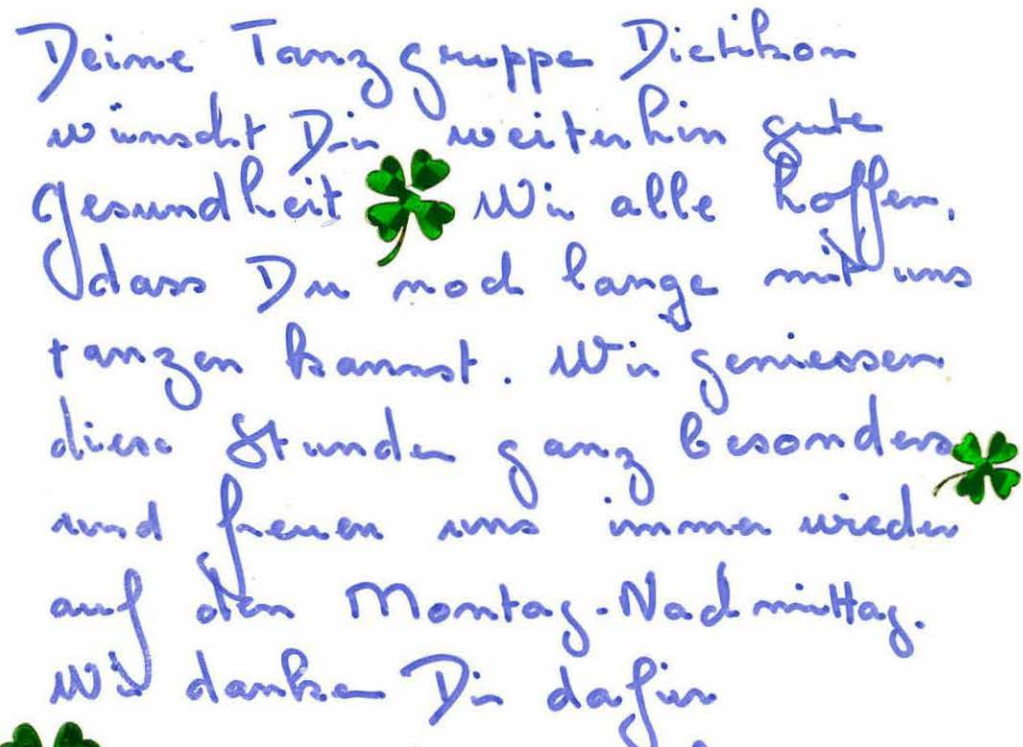 Deine Tanzgruppe Dietikon
wünscht Dir weiterhin gute
gesundheit Wir alle hoffen,
dass Du noch lange mit uns
tanzen kannst. Wir geniessen
diese Stunden ganz besonders
und freuen uns immer wieder
auf den Montag-Nachmittag.
Wir danken Dir dafür